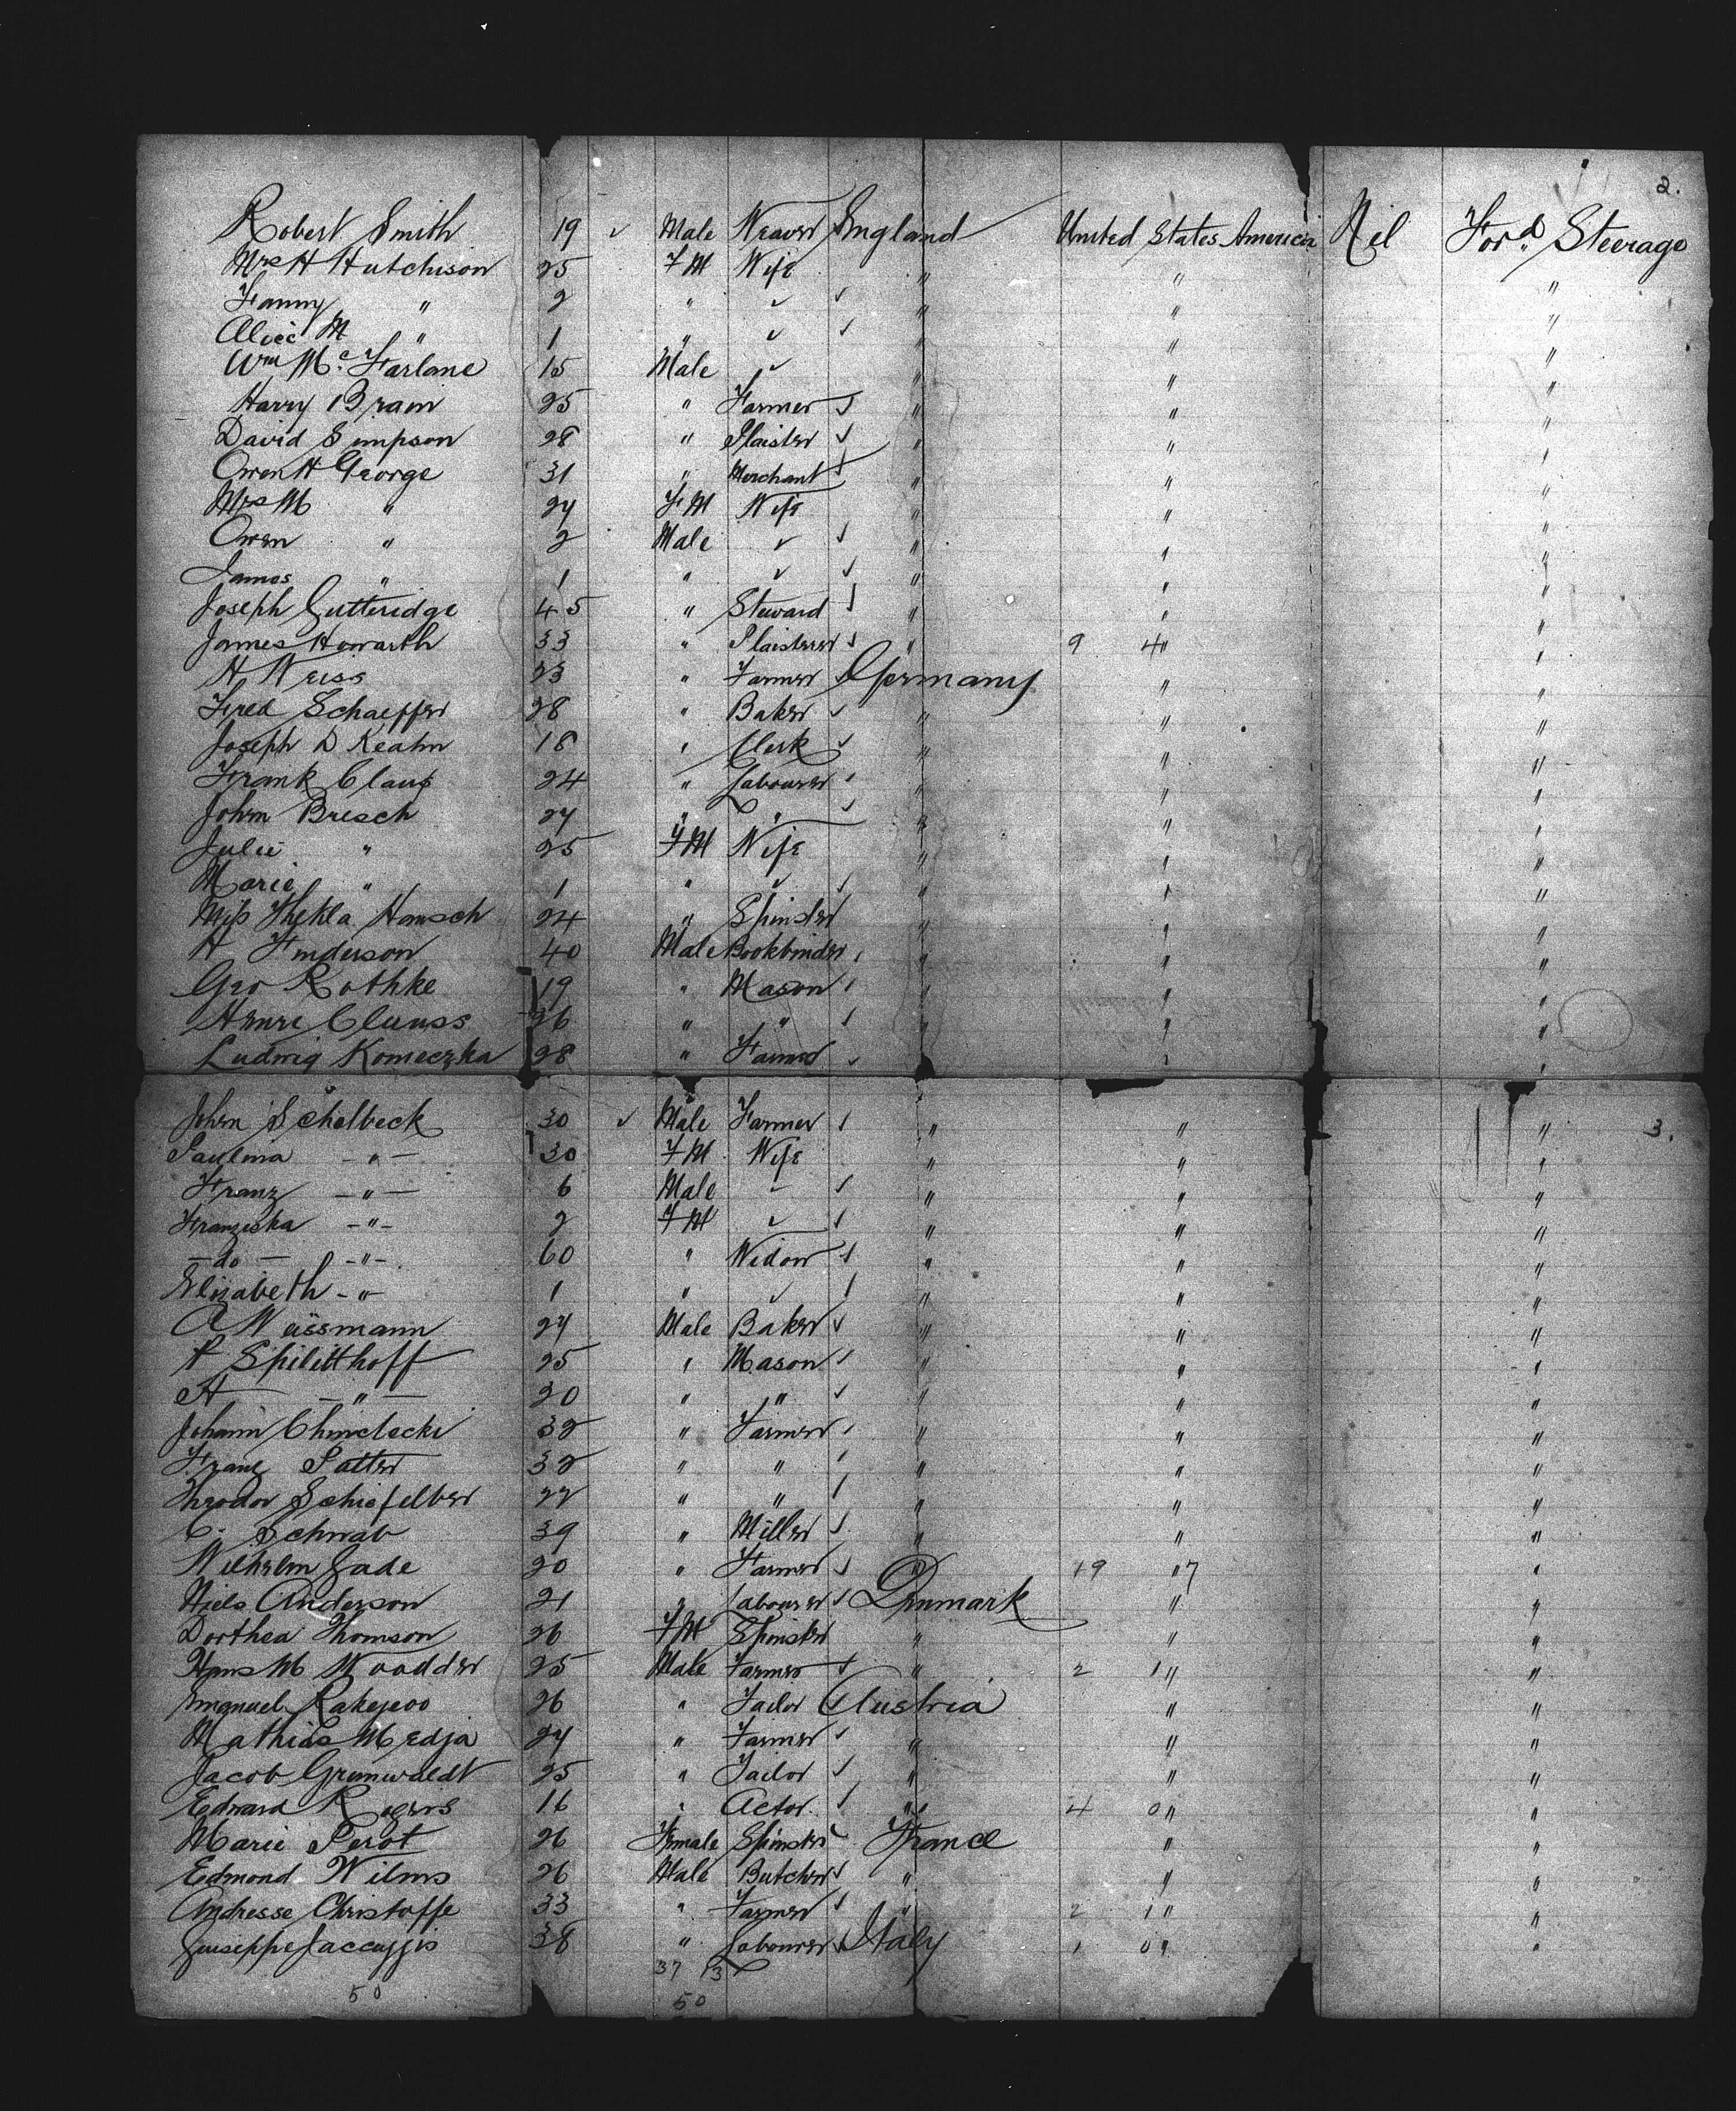 2.
Robert Smith 19 ✓ Male Weaver England United States America Nil Ford Steerage
Mrs H Hutchison 25 FM Wife " " "
Fanny " 2 " ✓ ✓ " " "
Alice M " 1 " ✓ ✓ " " "
Wm McFarlane 15 Male ✓ " " "
Harry Brain 25 " Farmer ✓ " " "
David Simpson 28 " Plaister ✓ " " "
Owen H George 31 " Merchant ✓ " " "
Mrs M " 27 FM Wife " " "
Owen " 2 Male ✓ ✓ " " "
James " 1 " ✓ ✓ " " "
Joseph Gutteridge 45 " Steward ✓ " " "
James Howarth 33 " Plaisterer ✓ " 9 4 " "
H Weiss 23 " Farmer ✓ Germany " "
Fred Schaeffer 28 " Baker ✓ " " "
Joseph D Keahn 18 " Clerk ✓ " " "
Frank Claus 24 " Labourer ✓ " " "
John Bresch 27 " " ✓ " " "
Julie " 25 FM Wife " " "
Marie " 1 " ✓ ✓ " " "
Miss Thekla Hamsch 24 " Spinster " " "
H Finderson 40 Male Bookbinder ✓ " " "
Geo Rothke 19 " Mason ✓ " " "
Henri Clauss 26 " " ✓ " " "
Ludwig Komeczka 28 " Farmer ✓ " " "
John Schelbeck 30 ✓ Male Farmer ✓ " " " 3.
Paulina - " - 30 FM Wife " " "
Franz - " - 6 Male ✓ ✓ " " "
Franziska - " - 2 FM ✓ ✓ " " "
- do - - " - 60 " Widow ✓ " " "
Elizabeth - " - 1 " ✓ ✓ " " "
A Weissmann 27 Male Baker ✓ " " "
P Spilitthoff 25 " Mason ✓ " " "
A - " - 20 " " ✓ " " "
Johann Chmelecki 32 " Farmer ✓ " " "
Franz Patter 32 " " ✓ " " "
Theodor Schiefelber 22 " " ✓ " " "
C. Schwab 39 " Miller ✓ " " "
Wilhelm Gade 20 " Farmer ✓ " 19 " 7 "
Niels Anderson 21 " Labourer ✓ Denmark " "
Dorthea Thomson 26 FM Spinster " " "
Hans M Woodder 25 Male Farmer ✓ " 2 1 " "
Emanuel 26 " Tailor ✓ Austria " "
Mathias Medja 27 " Farmer ✓ " " "
Jacob Grunwaldt 25 " Tailor ✓ " " "
Edward Rogers 16 " Actor ✓ " 4 0 " "
Marie Perot 26 Female Spinster ✓ France " "
Edmond Wilms 26 Male Butcher ✓ " " "
Andresse Christoffe 33 " Farmer ✓ " 2 1 " "
Guiseppe 38 " Labourer ✓ Italy 1 0 " "
37 13
50 50